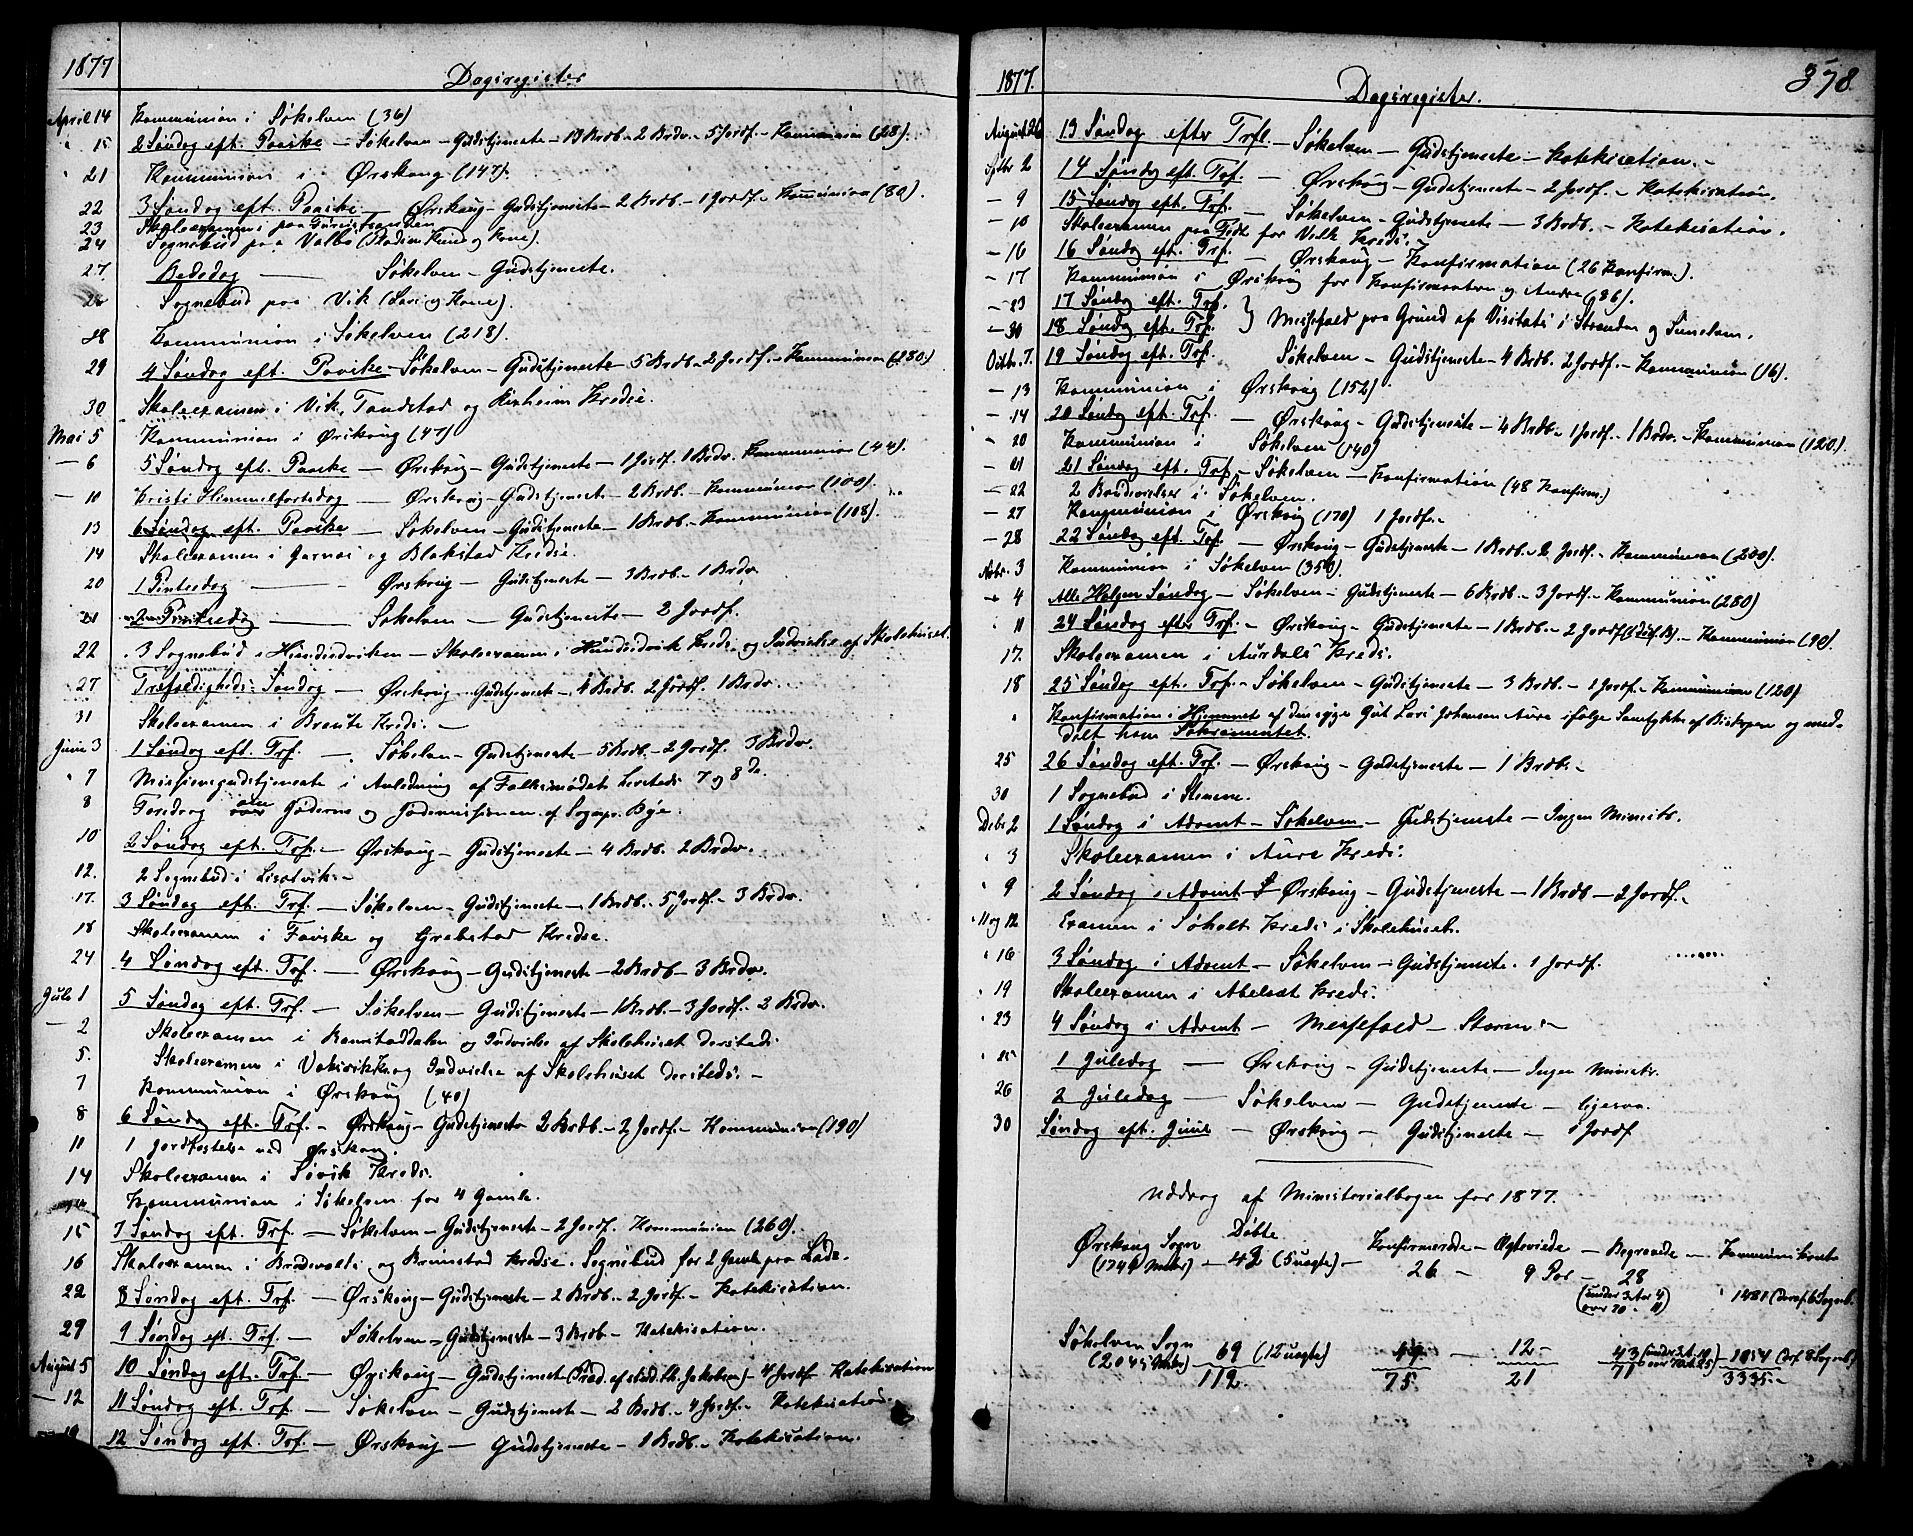 1877
Dagsregister
April 14 Kommunion i Søkelven (36)
" 15 2 Søndag eft. Paaske – Søkelven – Gudstjeneste – 13 Brdb. – 2 Brdv. – 5 Jordf. – Kommunion (28).
" 21 Kommunion i Ørskoug (147).
22 3 Søndag eft. Paaske – Ørskoug – Gudstjeneste – 2 Brdb. – 1 Jordf. – Kommunion (80).
23 Skoleexamen paa
24 Sognebud paa Valbø Kone).
27. Bededag – Søkelven – Gudstjeneste.
Sognebud paa Vik (Lars og Kone).
28 Kommunion i Søkelven (218).
29 4 Søndag eft. Paaske – Søkelven – Gudstjeneste – 5 Brdb. – 2 Jordf. – Kommunion (280.)
30 Skoleexamen i Vik, Tandstad og Kredse.
Mai 5 Kommunion i Ørskoug (47)
– 6 5 Søndag eft. Paaske – Ørskoug – Gudstjeneste – 1 Jordf. 1 Brdv. Kommunion (44).
– 10 Kristi Himmelfartsdag – Ørskoug – Gudstjeneste – 2 Brdb. – Kommunion (100).
13 6 Søndag eft. Paaske – Søkelven – Gudstjeneste – 1 Brdb. – Kommunion (108).
14 Skoleexamen i Jarnæs og Blakstad Kredse.
20 1 Pintsedag – Ørskoug – Gudstjeneste – 3 Brdb. – 1 Brdv.
21 2 Pintsedag – Søkelven – Gudstjeneste – 2 Jordf.
22 3 Sognebud i Hundeidviken – Skoleexamen i Hundeidvik Kreds og Indvielse af Skolehuset.
27 Trefoldigheds Søndag – Ørskoug – Gudstjeneste – 4 Brdb. 2 Jordf. 1 Brdv.
31 Skoleexamen i Braute Kreds. –
Juni 3 1 Søndag eft. Trf. – Søkelven – Gudstjeneste – 5 Brdb. – 2 Jordf. 3 Brdv.
" 7 Missionsgudstjeneste i Anledning af Folkemødet 7 og 8de
8 Foredrag om Jøderne og Jødemissionen af Sognpr. Bye.
10 2 Søndag eft. Trf. – Ørskoug – Gudstjeneste – 4 Brdb. 2 Brdv.
12. 2 Sognebud i
17. 3 Søndag eft. Trf. – Søkelven – Gudstjeneste – 1 Brdb. – 5 Jordf. – 3 Brdv.
18 Skoleexamen i Fauske og Grebstad Kredse.
24 4 Søndag eft. Trf. – Ørskoug – Gudstjeneste – 2 Brdb. – 3 Brdv.
Juli 1 5 Søndag eft. Trf. – Søkelven – Gudstjeneste – 1 Brdb. – 3 Jordf. – 2 Brdv.
– 2 Skoleexamen i Ramstaddalen og Indvielse af Skolehuset dersteds
5. Skoleexamen i Vaksvik Kr. og Indvielse af Skolehuset dersteds. –
7 Kommunion i Ørskoug (40)
8 6 Søndag eft. Trf. – Ørskoug – Gudstjeneste 2 Brdb. – 2 Jordf. – Kommunion (190)
11 1 Jordfæstelse ved Ørskoug.
14 Skoleexamen i Søvik Kreds.
Kommunion i Søkelven for 4 Gamle.
15 7 Søndag eft. Trf. – Søkelven – Gudstjeneste – 2 Jordf. Kommunion (260).
16 Skoleexamen i Brødevolds og Brunstad Kredse. Sognebud for 2 Gamle paa Lade.
22 8 Søndag eft. Trf. – Ørskoug – Gudstjeneste – 2 Brdb. – 2 Jordf. – Katekisation.
29 9 Søndag eft. Trf. – Søkelven – Gudstjeneste – 3 Brdb. – Katekisation.
August 5 10 Søndag eft. Trf. – Ørskoug – Gudstjeneste (Præd. af stud. th. Jakobsen) – 4 Jordf. Katekisation
– 12 11 Søndag eft. Trf. – Søkelven – Gudstjeneste – 2 Brdb. – 4 Jordf. – Katekisation.
19 12 Søndag eft. Trf. – Ørskoug – Gudstjeneste – 1 Brdb. – Katekisation.
1877.
Dagsregister.
378
August 26 13 Søndag efter Trfl. – Søkelven – Gudstjeneste – Katekisation. –
Sptbr 2 14 Søndag eft. Trf. – Ørskoug – Gudstjeneste – 2 Jordf. – Katekisation.
– 9 15 Søndag eft. Trf. – Søkelven – Gudstjeneste – 3 Brdb. – Katekisation.
– 10 Skoleexamen paa for Velle Kreds.
– 16 16 Søndag eft. Trf. – Ørskoug – Konfirmation (26 Konfirm.).
– 17 Kommunion i Ørskoug for Konfirmanter og Andre (86).
– 23 17 Søndag eft. Trf.
– 30 18 Søndag eft. Trf. } Messefald paa Grund af Visitats i Stranden og Sunelven.
Octbr. 7. 19 Søndag eft. Trf. Søkelven – Gudstjeneste – 4 Brdb. 2 Jordf. – Kommunion (16).
– 13 Kommunion i Ørskoug (152)
– 14 20 Søndag eft. Trf. – Ørskoug – Gudstjeneste – 4 Brdb. – 1 Jordf. – 1 Brdv. – Kommunion (120.)
– 20 Kommunion i Søkelven (140)
– 21 21 Søndag eft. Trf. – Søkelven – Konfirmation (48 Konfirm.)
– 22 2 Brudevielser i Søkelven.
– 27 Kommunion i Ørskoug (170) 1 Jordf. –
– 28 22 Søndag eft. Trf. – Ørskoug – Gudstjeneste – 1 Brdb. – 2 Jordf. – Kommunion (200).
Nvbr. 3 Kommunion i Søkelven (350).
4 Alle Helgen Søndag – Søkelven – Gudstjeneste – 6 Brdb. – 3 Jordf. – Kommunion (280)
11 24 Søndag efter Trf. – Ørskoug – Gudstjeneste – 1 Brdb. – 2 Jordf – Kommunion (90).
17. Skoleexamen i Aurdals Kreds.
18 25 Søndag eft. Trf. – Søkelven – Gudstjeneste – 3 Brdb. – 1 Jordf. – Kommunion (120)
" Konfirmation i Hjemmet af den syge Gut Lars Johansen Aure ifølge Samtykke af Biskopen og med-
delt ham Sakramentet.
25 26 Søndag eft. Trf. – Ørskoug – Gudstjeneste – 1 Brdb. –
30 1 Sognebud i Stenene.
Debr 2 1 Søndag i Advent – Søkelven – Gudstjeneste – Ingen Ministr.
" 3 Skoleexamen i Aure Kreds.
" 9 2 Søndag i Advent – Ørskoug – Gudstjeneste – 1 Brdb – 2 Jordf. –
" 11 og 12 Examen i Søholt Kreds i Skolehuset.
" 16 3 Søndag i Advent – Søkelven – Gudstjeneste. 1 Jordf.
" 19 Skoleexamen i Abelsæt Kreds.
" 23 4 Søndag i Advent – Messefald – Storm. –
" 25 1 Juledag – Ørskoug – Gudstjeneste – Ingen Ministr.
26 2 Juledag – Søkelven – Gudstjeneste – ligesaa.
30 Søndag eft. Juul – Ørskoug – Gudstjeneste – 1 Jordf.
Uddrag af Ministerialbogen for 1877.
Døbte Konfirmerede – Ægteviede – Begravede – Kommunikanter
Ørskoug Sogn (1741 Msker) – 42 (5 uægte) – 26 – 9 Par – 28
(under 3 Aar 4)
(over 70 – 11) 1481 (deraf 6 Sogneb.
Søkelven Sogn
(2045 Msker) 69 (12 uægte) 49 – 12 – 43 1854 (drf 8 Sogneb.)
112. 75. 21 71 3335. –